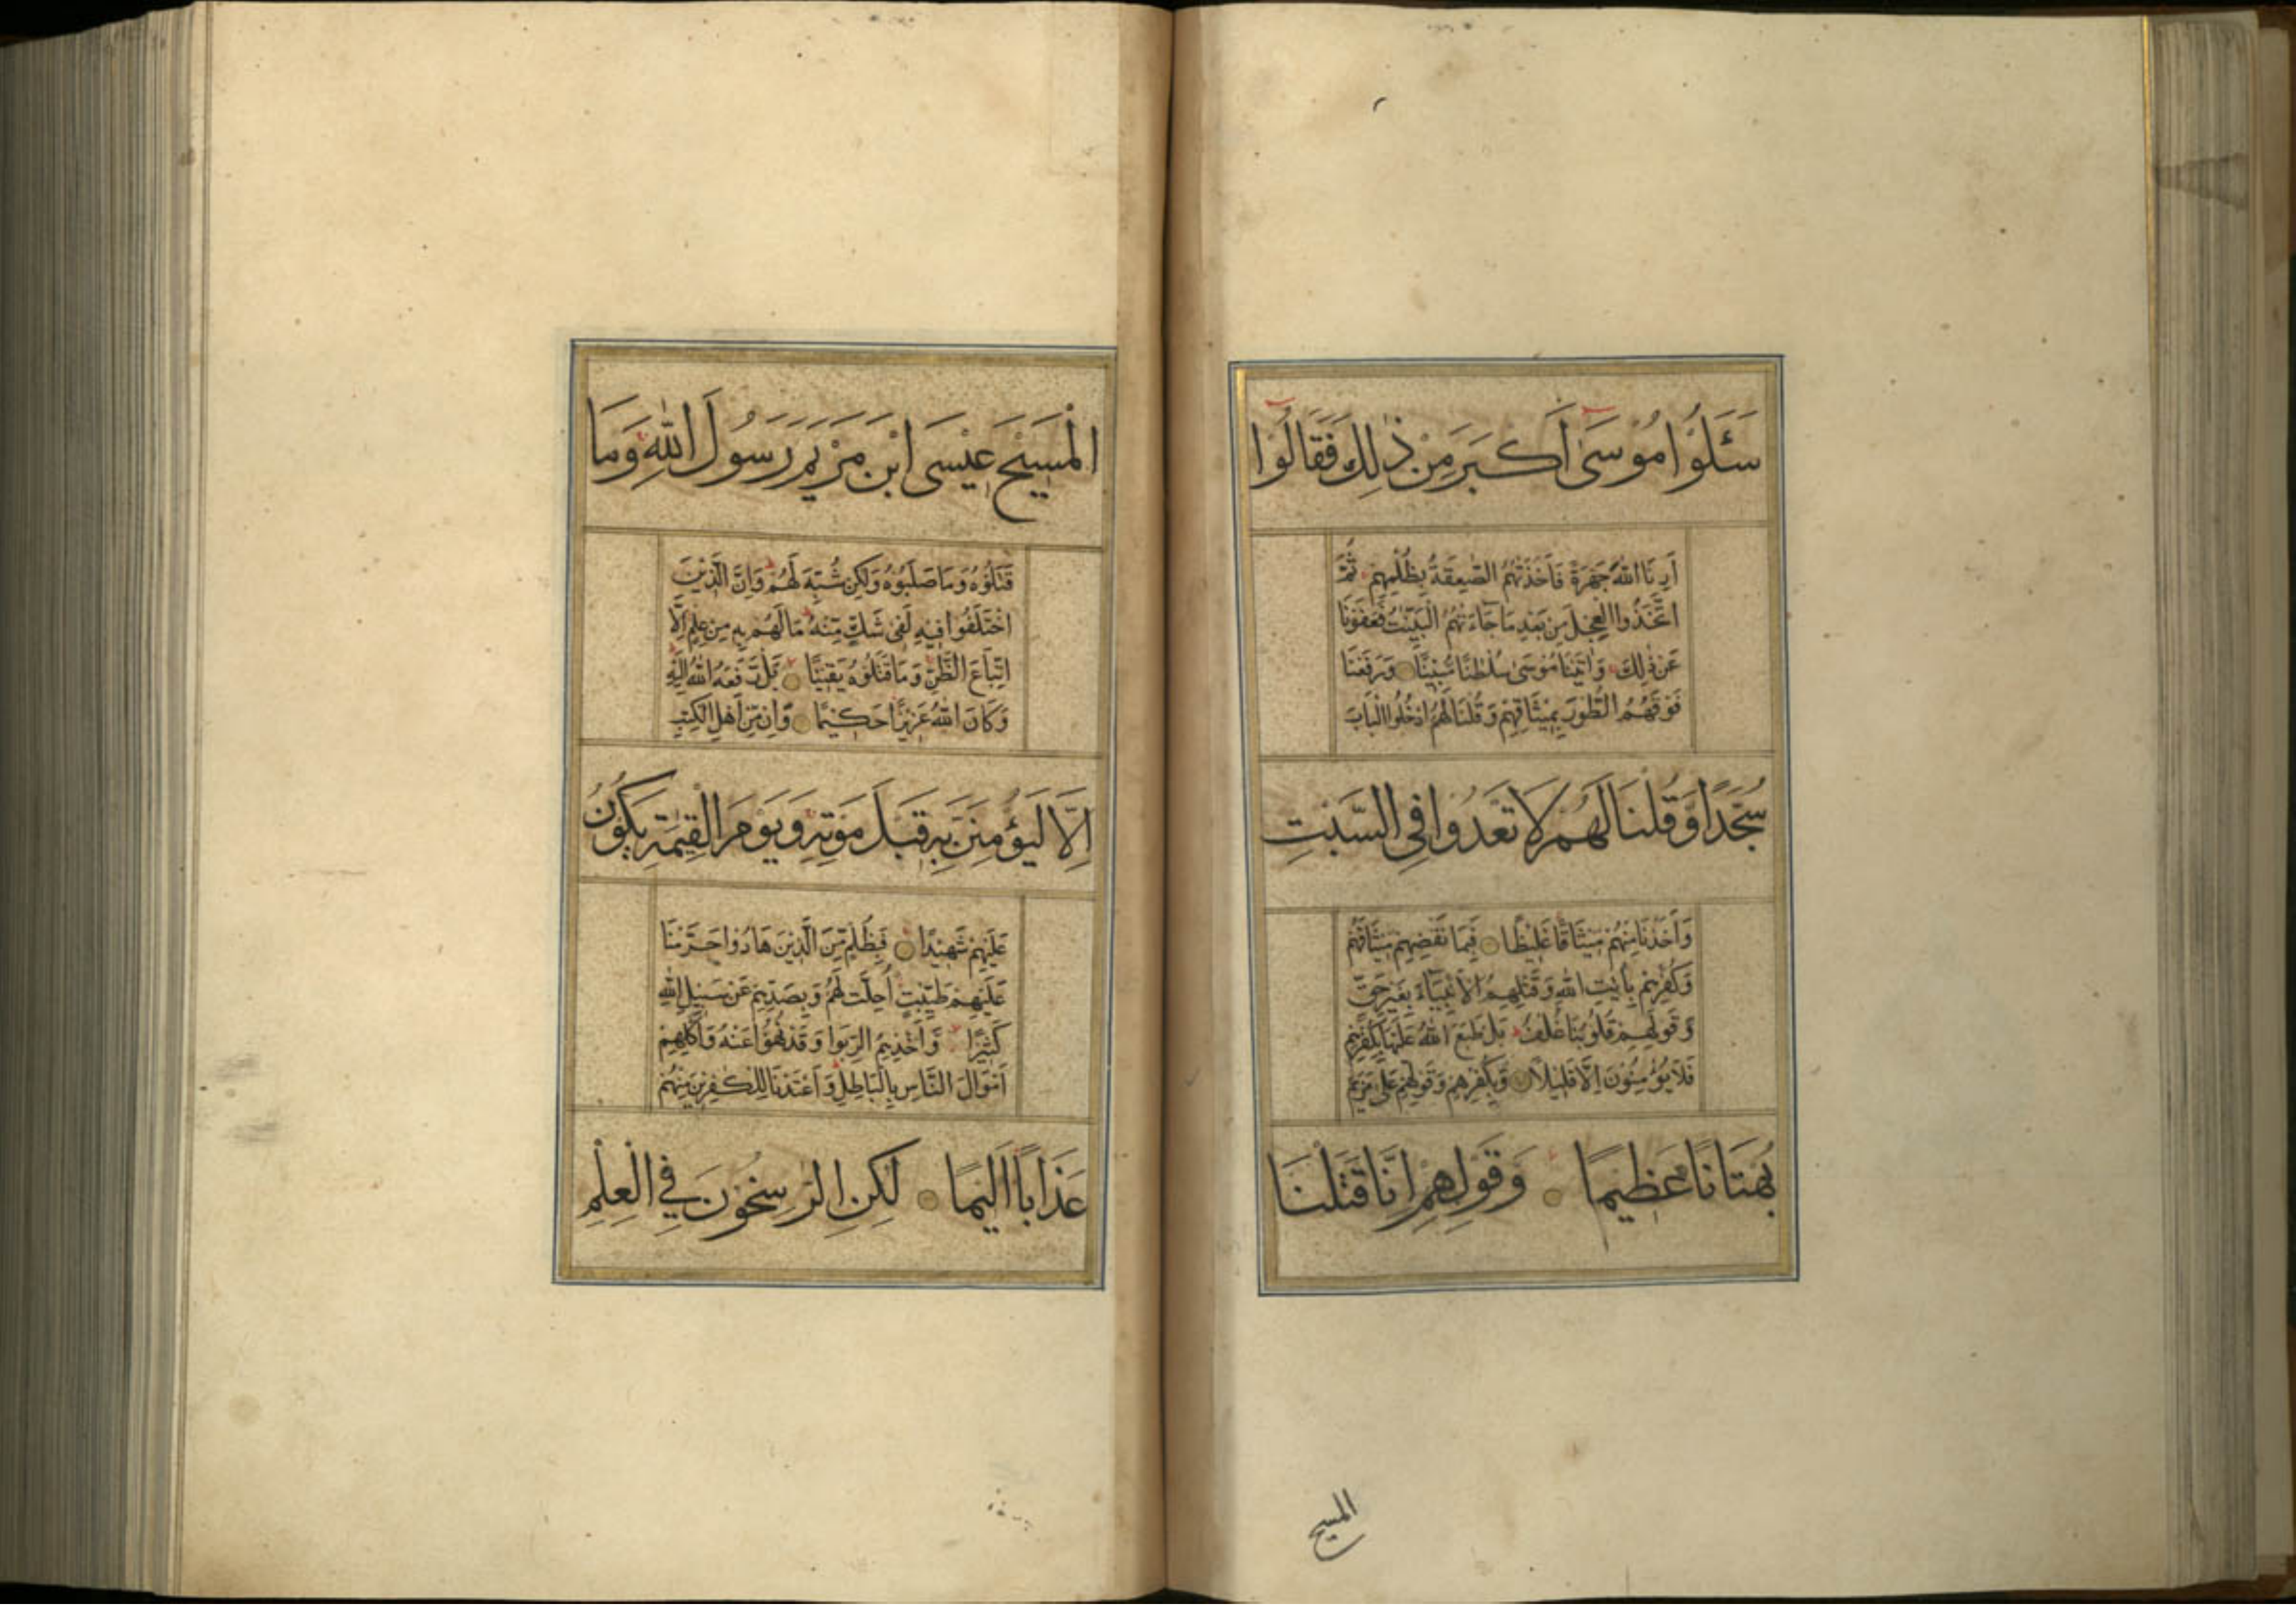 سَئَلُوا مُوسَىٰ أَكْبَرَ مِنْ ذٰلِكَ فَقَالُوا
أَرِنَا اللّٰهَ جَهْرَةً فَأَخَذَتْهُمُ الصّٰعِقَةُ بِظُلْمِهِمْ ثُمَّ
اتَّخَذُوا الْعِجْلَ مِنْ بَعْدِ مَا جَاءَتْهُمُ الْبَيِّنٰتُ فَعَفَوْنَا
عَنْ ذٰلِكَ وَاٰتَيْنَا مُوسَىٰ سُلْطٰنًا مُبِينًا وَرَفَعْنَا
فَوْقَهُمُ الطُّورَ بِمِيثَاقِهِمْ وَقُلْنَا لَهُمُ ادْخُلُوا الْبَابَ
سُجَّدًا وَقُلْنَا لَهُمْ لَا تَعْدُوا فِي السَّبْتِ
وَأَخَذْنَا مِنْهُمْ مِيثَاقًا غَلِيظًا فَبِمَا نَقْضِهِمْ مِيثَاقَهُمْ
وَكُفْرِهِمْ بِاٰيٰتِ اللّٰهِ وَقَتْلِهِمُ الْأَنْبِيَاءَ بِغَيْرِ حَقٍّ
وَقَوْلِهِمْ قُلُوبُنَا غُلْفٌ بَلْ طَبَعَ اللّٰهُ عَلَيْهَا بِكُفْرِهِمْ
فَلَا يُؤْمِنُونَ إِلَّا قَلِيلًا وَبِكُفْرِهِمْ وَقَوْلِهِمْ عَلَىٰ مَرْيَمَ
بُهْتَانًا عَظِيمًا وَقَوْلِهِمْ إِنَّا قَتَلْنَا
المسيح
الْمَسِيحَ عِيسَى ابْنَ مَرْيَمَ رَسُولَ اللّٰهِ وَمَا
قَتَلُوهُ وَمَا صَلَبُوهُ وَلٰكِنْ شُبِّهَ لَهُمْ وَإِنَّ الَّذِينَ
اخْتَلَفُوا فِيهِ لَفِي شَكٍّ مِنْهُ مَا لَهُمْ بِهِ مِنْ عِلْمٍ إِلَّا
اتِّبَاعَ الظَّنِّ وَمَا قَتَلُوهُ يَقِينًا بَلْ رَفَعَهُ اللّٰهُ إِلَيْهِ
وَكَانَ اللّٰهُ عَزِيزًا حَكِيمًا وَإِنْ مِنْ أَهْلِ الْكِتٰبِ
إِلَّا لَيُؤْمِنَنَّ بِهِ قَبْلَ مَوْتِهِ وَيَوْمَ الْقِيٰمَةِ يَكُونُ
عَلَيْهِمْ شَهِيدًا فَبِظُلْمٍ مِنَ الَّذِينَ هَادُوا حَرَّمْنَا
عَلَيْهِمْ طَيِّبٰتٍ أُحِلَّتْ لَهُمْ وَبِصَدِّهِمْ عَنْ سَبِيلِ اللّٰهِ
كَثِيرًا وَأَخْذِهِمُ الرِّبٰوا وَقَدْ نُهُوا عَنْهُ وَأَكْلِهِمْ
أَمْوَالَ النَّاسِ بِالْبَاطِلِ وَأَعْتَدْنَا لِلْكٰفِرِينَ مِنْهُمْ
عَذَابًا أَلِيمًا لٰكِنِ الرّٰسِخُونَ فِي الْعِلْمِ